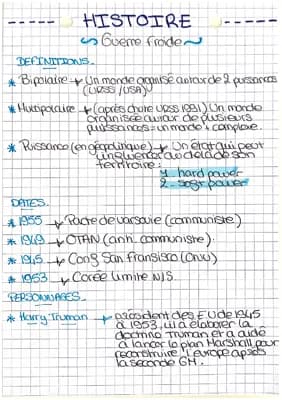 HISTOIRE
Guerre froide
DEFINITIONS.
* Bipolaire → Un monde organisé autour de 2 puissances
(URSS /USA)
* Multipolaire → (après chute URSS 1991) Un monde
organisée autour de plusieurs
puissances = un monde + complexe.
* Puissance (en géopolitique) → Un état qui peut
influencer au delà de son
territoire :
1. hard power
2. soft power
DATES.
* 1955 → Pacte de varsovie (communiste)
* 1949 → OTAN (anti communiste).
* 1945 → Cong San Fransisco (ONU)
* 1953 → Corée limite N/S.
PERSONNAGES.
* Harry Truman → président des EU de 1945
à 1953, il a élaborer la
doctrine Truman et a aidé
à lancer le plan Marshall pour
reconstruire l'europe après
la seconde GM.